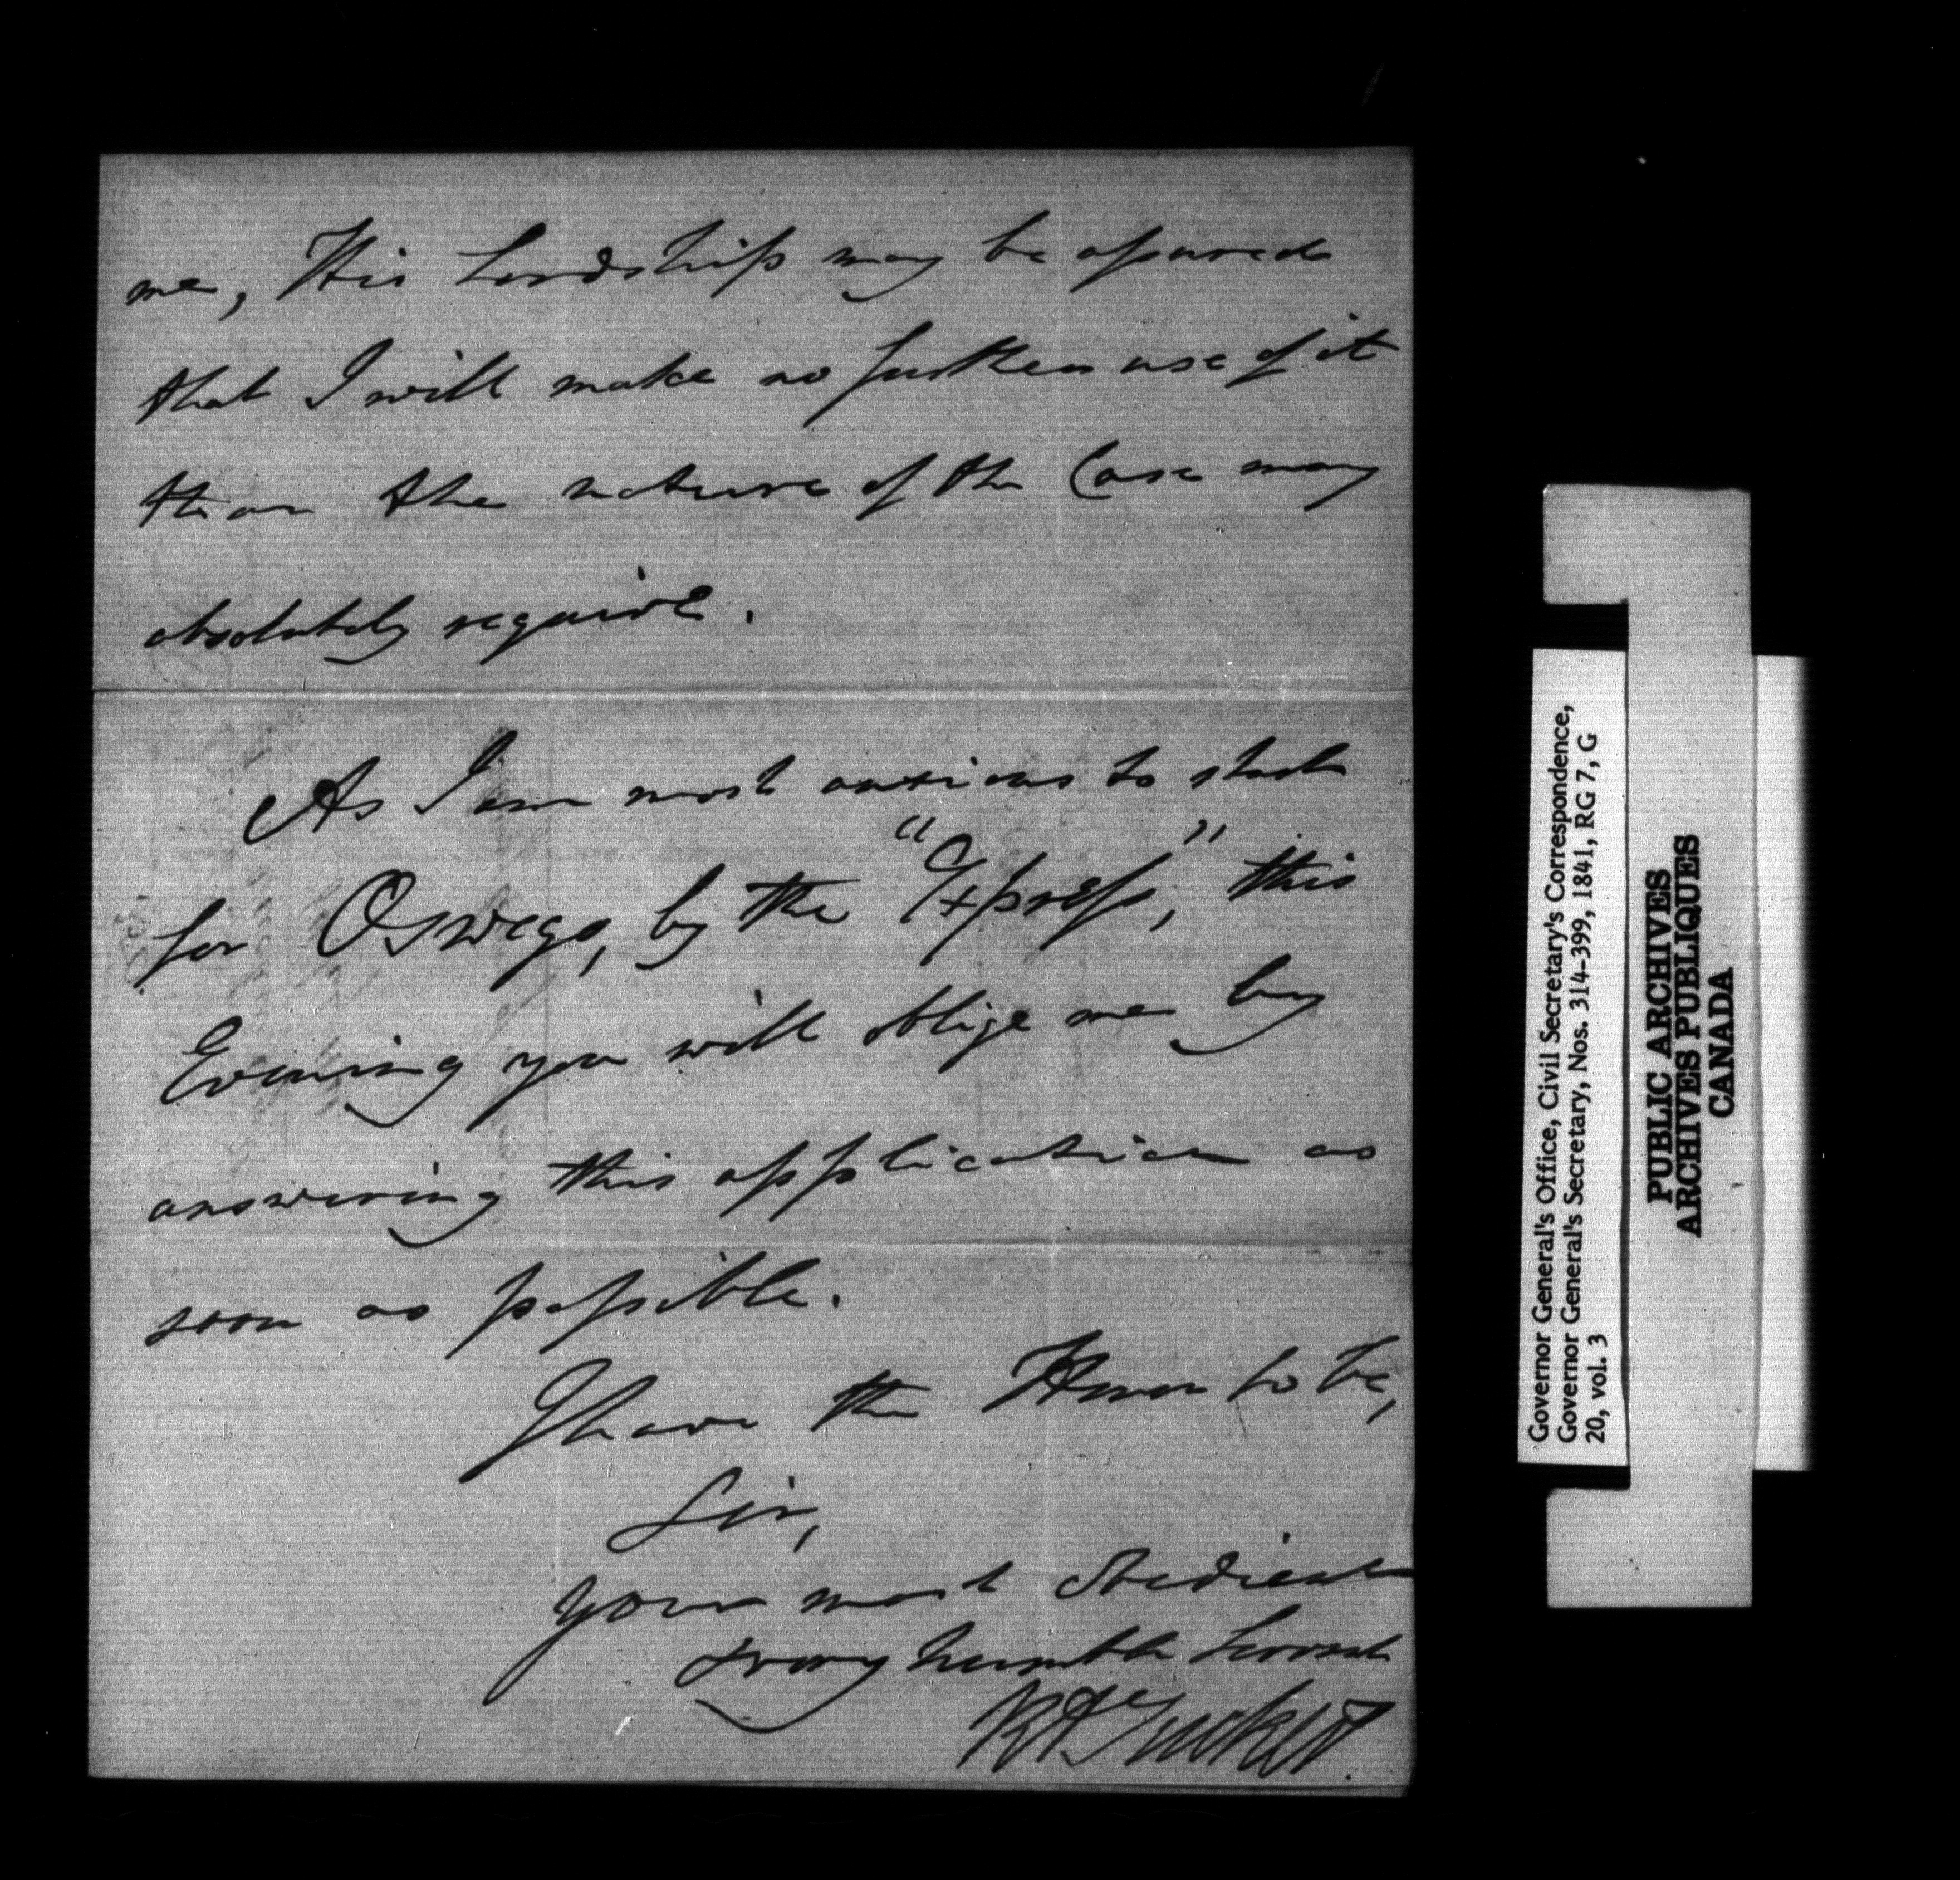 me, His Lordship may be assured
that I will make no further use of it
than the nature of the Case may
absolutely require.
As I am most anxious to start
for Oswego, by the "Express," this
Evening you will oblige me by
answering this application as
soon as possible.
I have the Honor to be,
Sir,
Your most Obedient
& very humble Servant
R A Tucker.
Governor General's Office, Civil Secretary's Correspondence,
Governor General's Secretary, Nos. 314-399, 1841, RG 7, G
20, vol. 3
PUBLIC ARCHIVES
ARCHIVES PUBLIQUES
CANADA